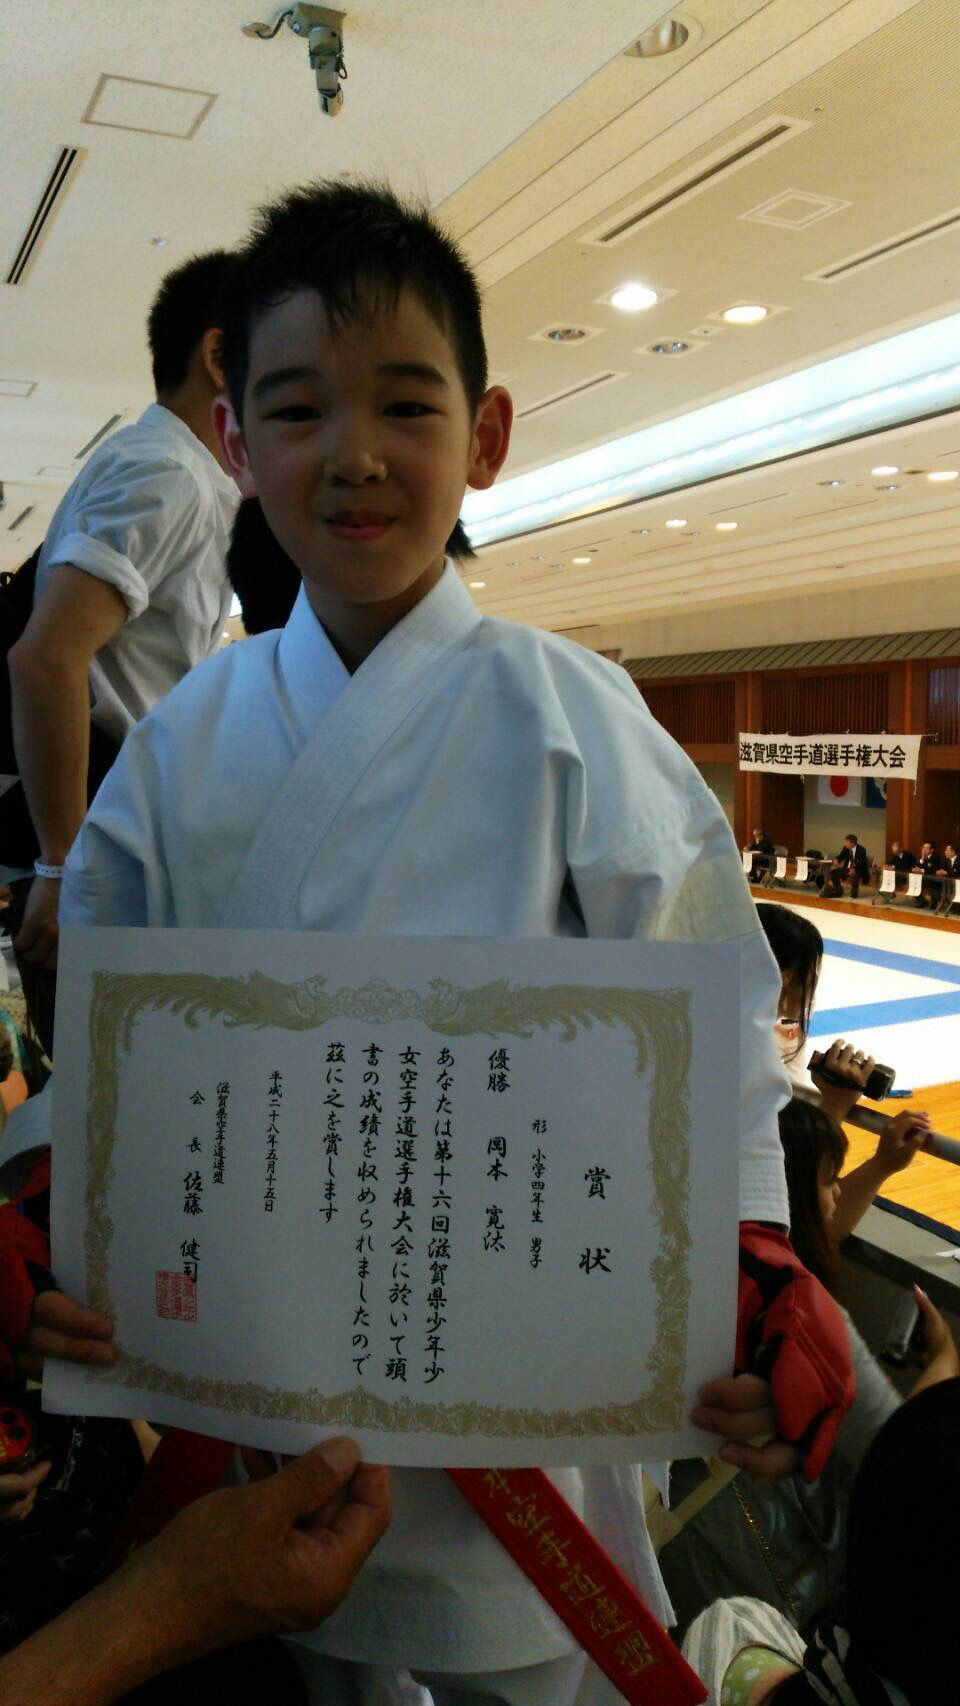 滋賀県空手道選手権大会
賞状
形 小学四年生 男子
優勝 岡本 寛汰
あなたは第十六回滋賀県少年少
女空手道選手権大会に於いて頭
書の成績を収められましたので
茲に之を賞します
平成二十八年五月十五日
滋賀県空手道連盟
会長 佐藤 健司
空手道連盟